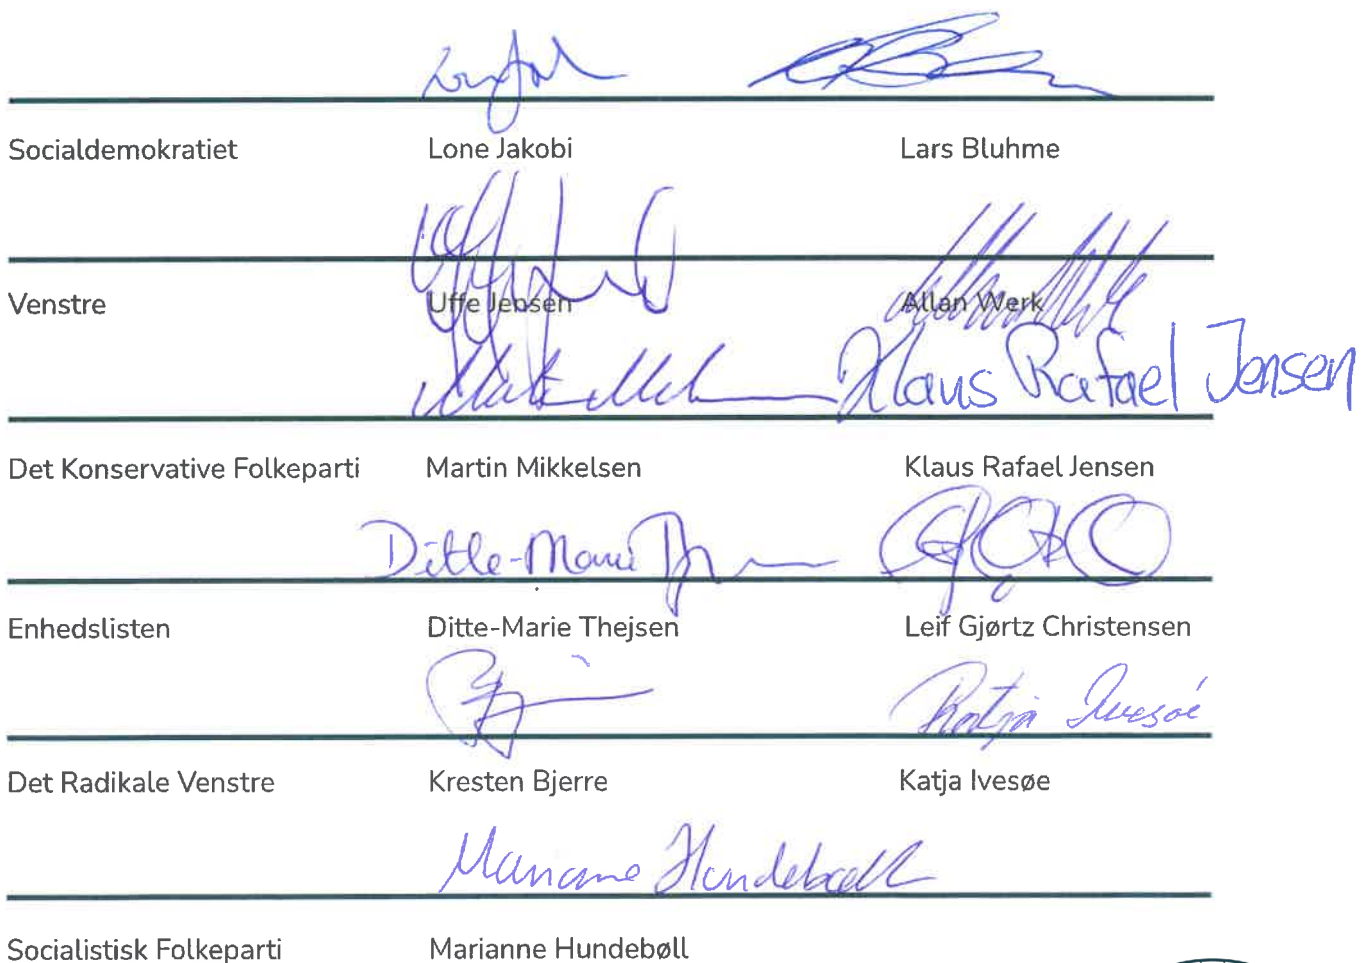 Socialdemokratiet Lone Jakobi Lars Bluhme
Venstre Uffe Jensen Allan Werk
Klaus Rafael Jensen
Det Konservative Folkeparti Martin Mikkelsen Klaus Rafael Jensen
Ditte-Marie
Enhedslisten Ditte-Marie Thejsen Leif Gjørtz Christensen
Katja Ivesøe
Det Radikale Venstre Kresten Bjerre Katja Ivesøe
Marianne Hundebøll
Socialistisk Folkeparti Marianne Hundebøll